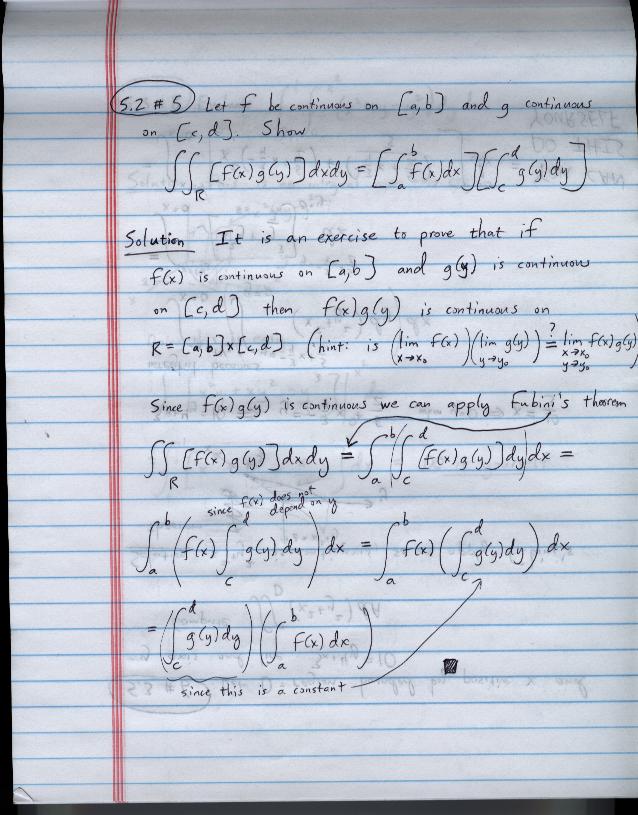 5.2 # 5) Let f be continuous on [a,b] and g continuous
on [c,d]. Show
∬_R [f(x)g(y)]dxdy = [∫_a^b f(x)dx][∫_c^d g(y)dy]
Solution It is an exercise to prove that if
f(x) is continuous on [a,b] and g(y) is continuous
on [c,d] then f(x)g(y) is continuous on
R=[a,b]×[c,d] (hint: is (lim_{x→x₀} f(x))(lim_{y→y₀} g(y)) ?= lim_{x→x₀ y→y₀} f(x)g(y))
Since f(x)g(y) is continuous we can apply Fubini's theorem
∬_R [f(x)g(y)]dxdy = ∫_a^b (∫_c^d [f(x)g(y)]dy)dx =
since f(x) does not
depend on y
∫_a^b (f(x) ∫_c^d g(y)dy) dx = ∫_a^b f(x) (∫_c^d g(y)dy) dx
= (∫_c^d g(y)dy)(∫_a^b f(x)dx)
since this is a constant